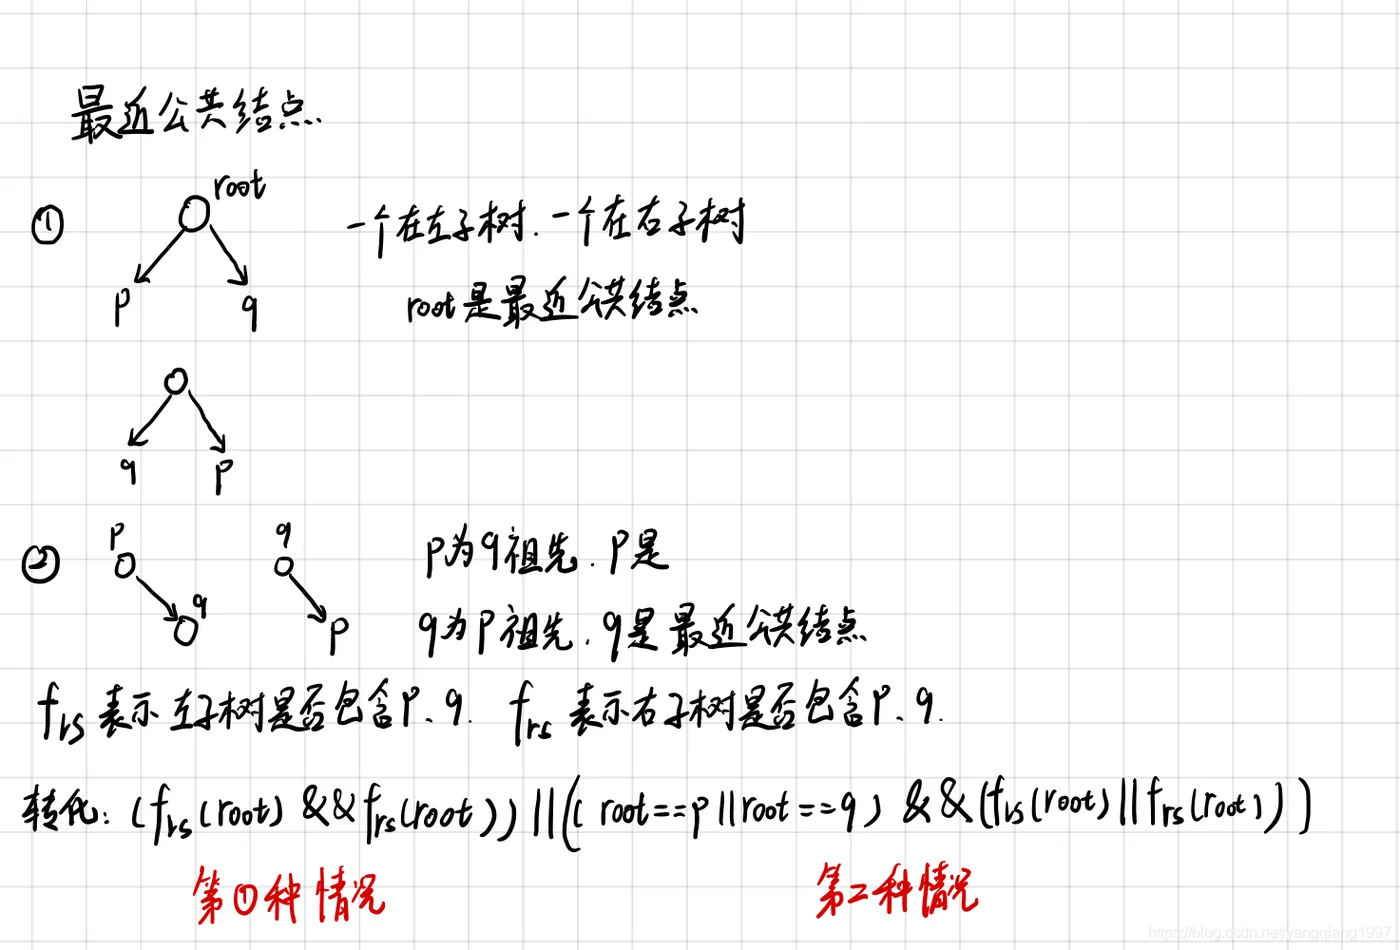 最近公共结点.
① root 一个在左子树. 一个在右子树
p q root是最近公共结点
q p
② p q p为q祖先. p是
q p q为p祖先. q是最近公共结点
frs 表示左子树是否包含p、q. frs 表示右子树是否包含p、q.
转化: (frs(root) && frs(root)) || ((root==p || root==q) && (fls(root) || frs(root)))
第①种情况 第二种情况
https://blog.csdn.net/yangqiang1997